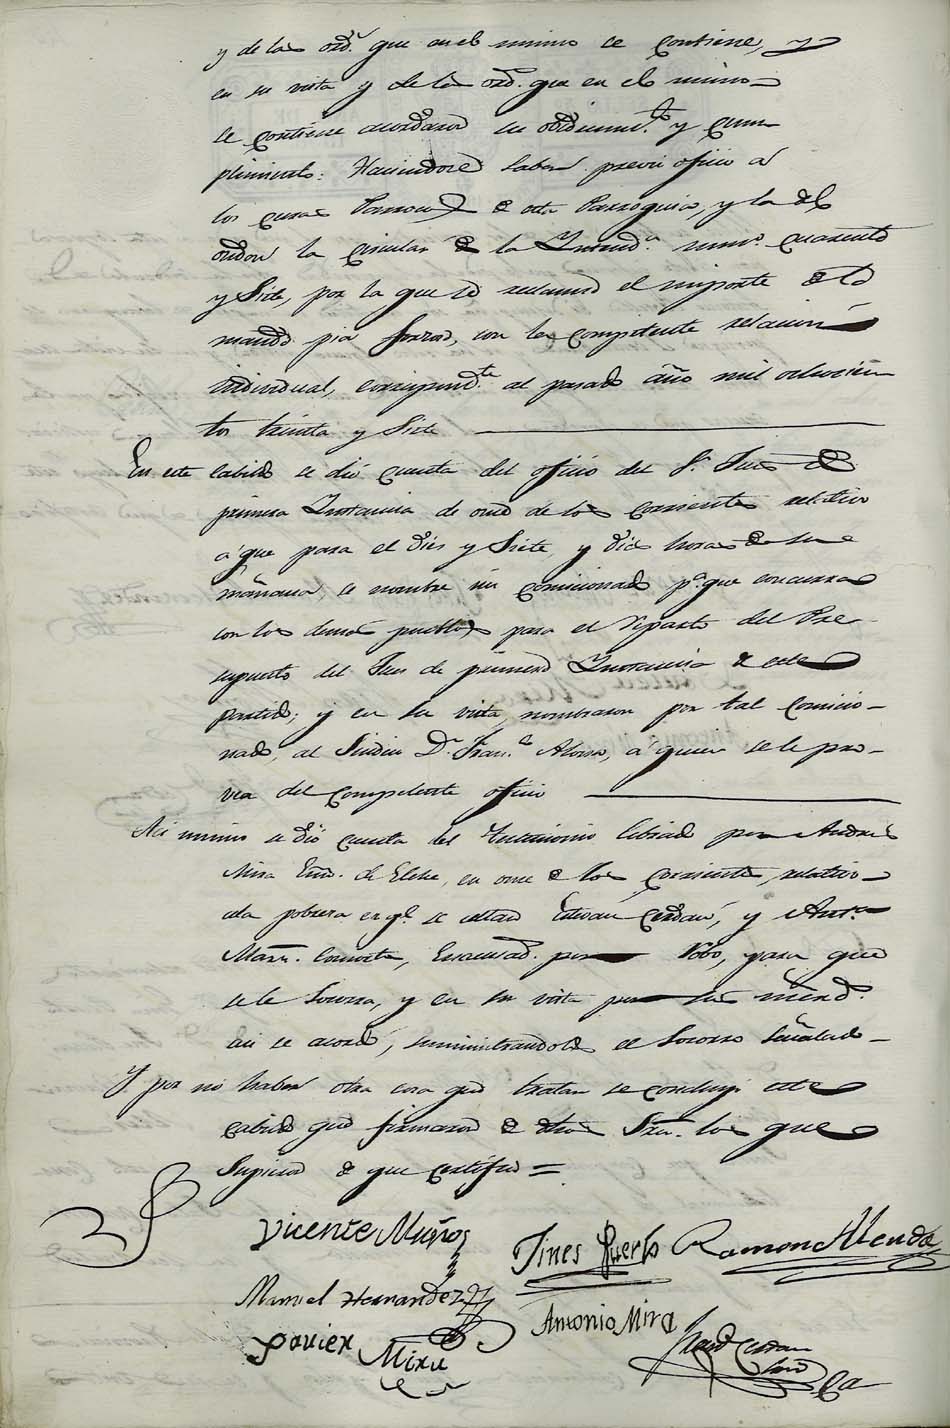 y de las ord.s que en el mismo se contiene, y
en su vista y de las ord.s que en el mismo
se contiene acordaron su obedecim.to y cum-
plimiento: Haciendose saber previo oficio á
los curas Parrocos de esta Parroquia, y la del
la circular de la Intend.a num.o cuarenta
y Siete, por la que se reclama el importe de la
manda pia forzosa, con la competente relacion
individual, correspond.te al pasado año mil ochocien-
tos treinta y Siete
En este cabildo se dió cuenta del oficio del S.r Juez de
primera Instancia de once de los corrientes relativo
á que para el dies y Siete, y diez horas de su
mañana, se nombre un comicionado p.a que concurra
con los demas pueblos para el Reparto del Pre-
supuesto del Juez de primera Instancia de este
partido; y en su vista, nombraron por tal comicio-
nado, al Sindico D.n Fran.co Alonso, á quien se le pro-
vea del competente oficio
Asi mismo se dió cuenta del Testimonio librado por Andres
Mira Esno. de Elche, en once de los corrientes, relativo
ala pobreza en q.e se allan Estevan Cerdan, y Ant.a
Mart. Consorte, por Robo, para que
se le Socorra, y en su vista por sus mrend.
asi se acordó, suministrandole el Socorro Señalado
Y por no haber otra cosa que tratar se concluyó este
cabildo que firmaron de dhos Sres. los que
Supieron de que certifico =
Vicente Muños
Jines Puerto Ramon Alenda
Manuel Hernandez
Antonio Mira
Xavier Mira